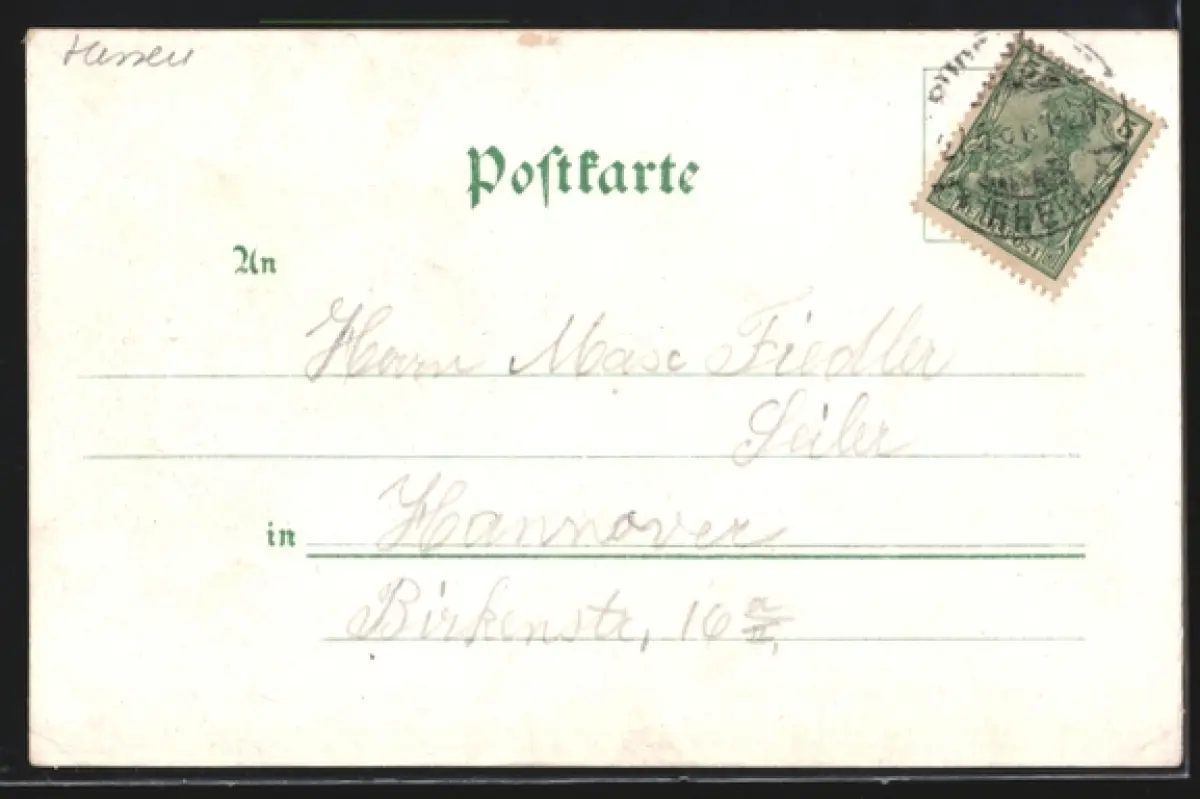 Hessen
Postkarte
An
Herrn Max Fiedler
Seiler
in Hannover
Birkenstr, 16 a/II.
5 5
REICHSPOST